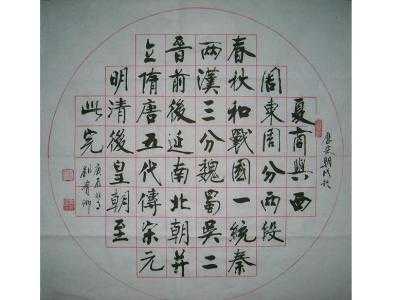 歷史朝代歌
夏商與西
周東周分兩段
春秋和戰國一統秦
兩漢三分魏蜀吳二
晉前後延南北朝并
立隋唐五代傳宋元
明清後皇朝至
此完
庚辰